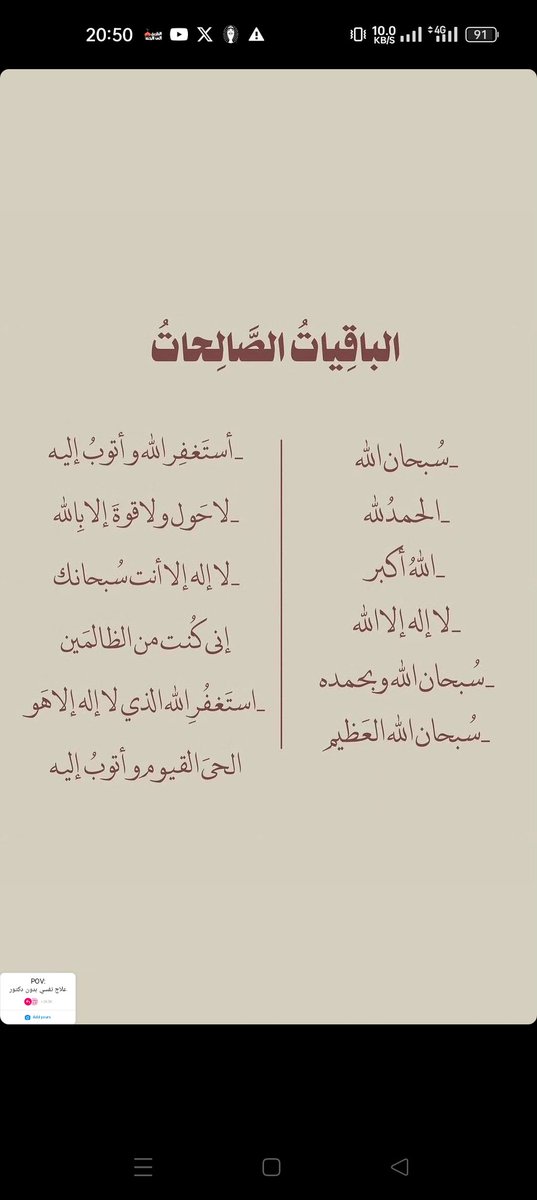 20:50
10.0
KB/S
4G
91
الباقِياتُ الصَّالِحاتُ
_سُبحان الله
_الحمدُلله
_اللهُ أكبر
_لا إله إلا الله
_سُبحان الله وبحمده
_سُبحان الله العَظيم
_أستَغفِر الله و أتوبُ إليه
_لا حَول ولا قوةَ إلا بِالله
_لا إله إلا أنت سُبحانك
إنى كُنت من الظالمَين
_استَغفُرِ الله الذي لا إله إلا هَو
الحىَ القيوم و أتوبُ إليه
POV:
علاج نفسي بدون دكتور